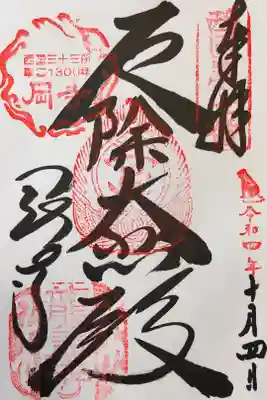 奉拝
令和四年十月四日
厄除大悲殿
西国三十三所
草創1300年
岡寺